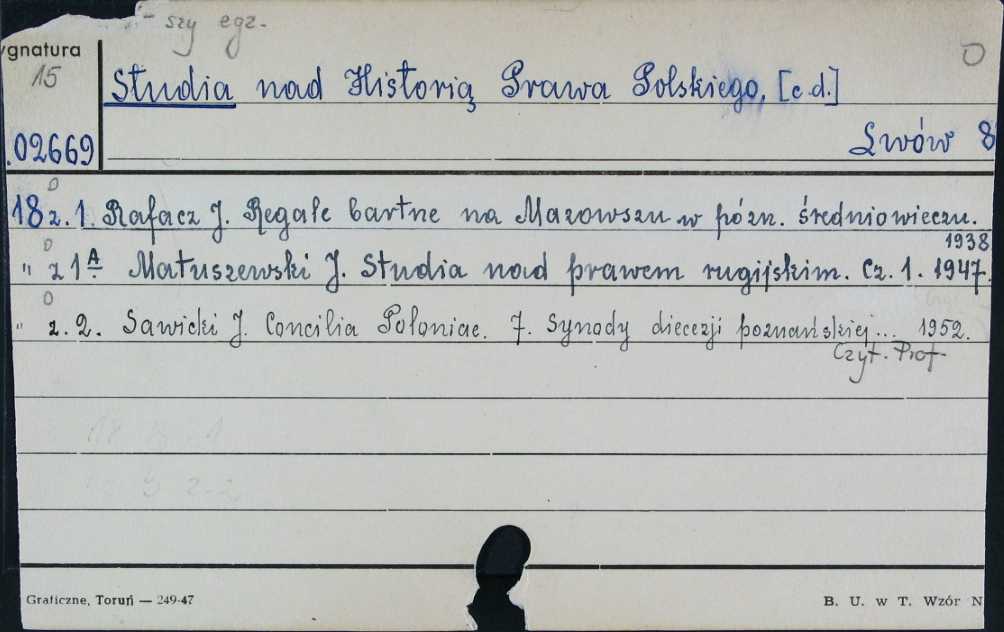 szy egz.
ygnatura
15
O
Studia nad Historią Prawa Polskiego, [c.d.]
.02669
Lwów 8
18 z. 1. Rafacz J. Regale bartne na Mazowszu w późn. średniowieczu.
1938
" z 1A Matuszewski J. Studia nad prawem rugijskim. Cz. 1. 1947.
" z. 2. Sawicki J. Concilia Poloniae. 7. Synody diecezji poznańskiej... 1952.
Czyt. Prof.
Graficzne, Toruń — 249-47
B. U. w T. Wzór N